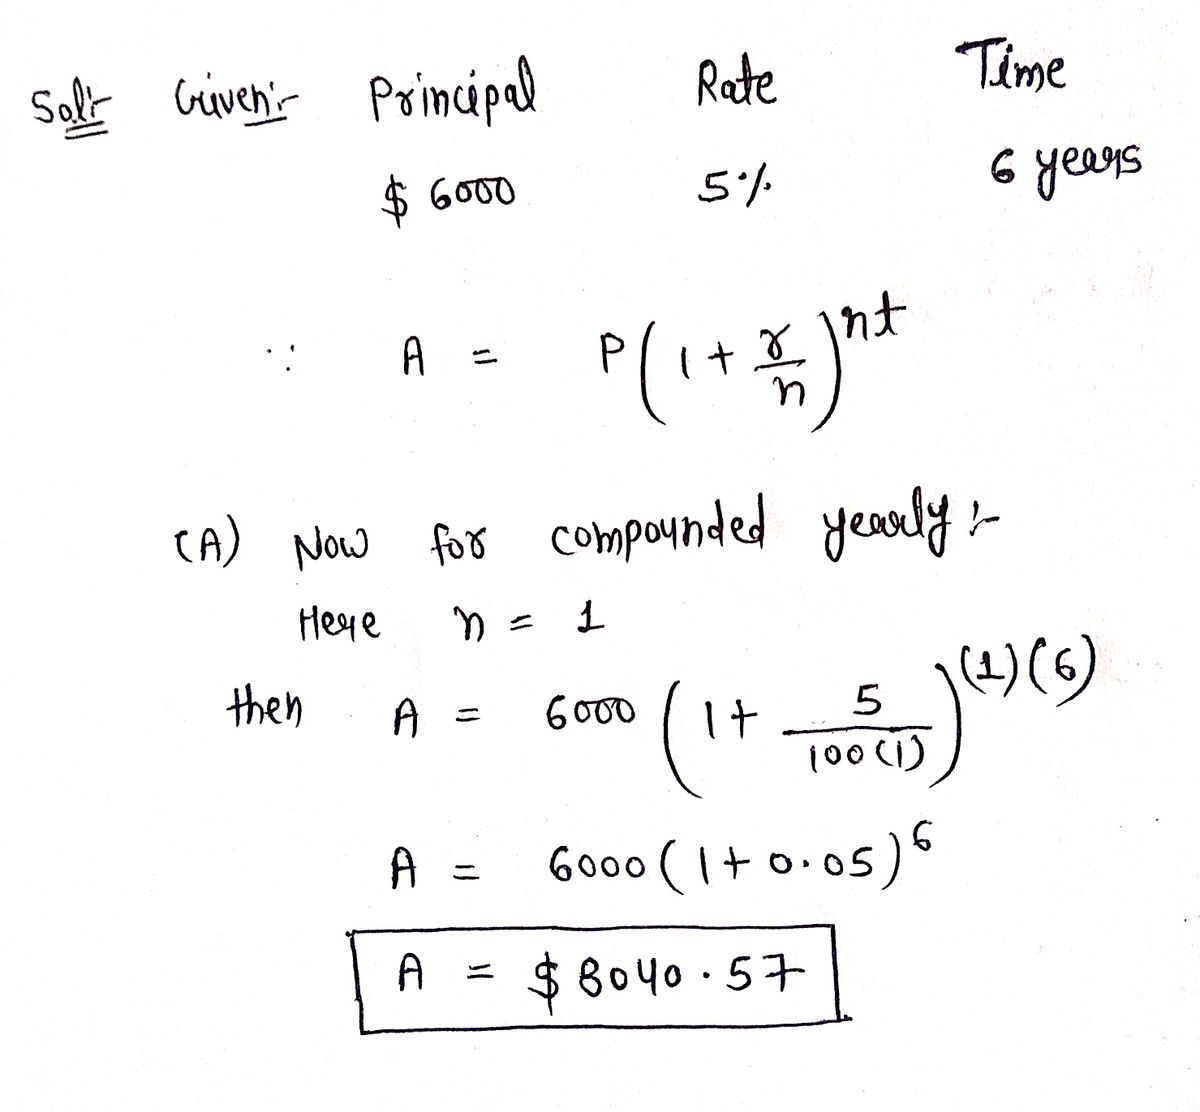 Sol:- Given:- Principal Rate Time
$ 6000 5% 6 years
∵ A = P(1 + r/n)^nt
(A) Now for compounded yearly :-
Here n = 1
then A = 6000 (1 + 5/100(1))^(1)(6)
A = 6000 (1 + 0.05)^6
A = $ 8040.57